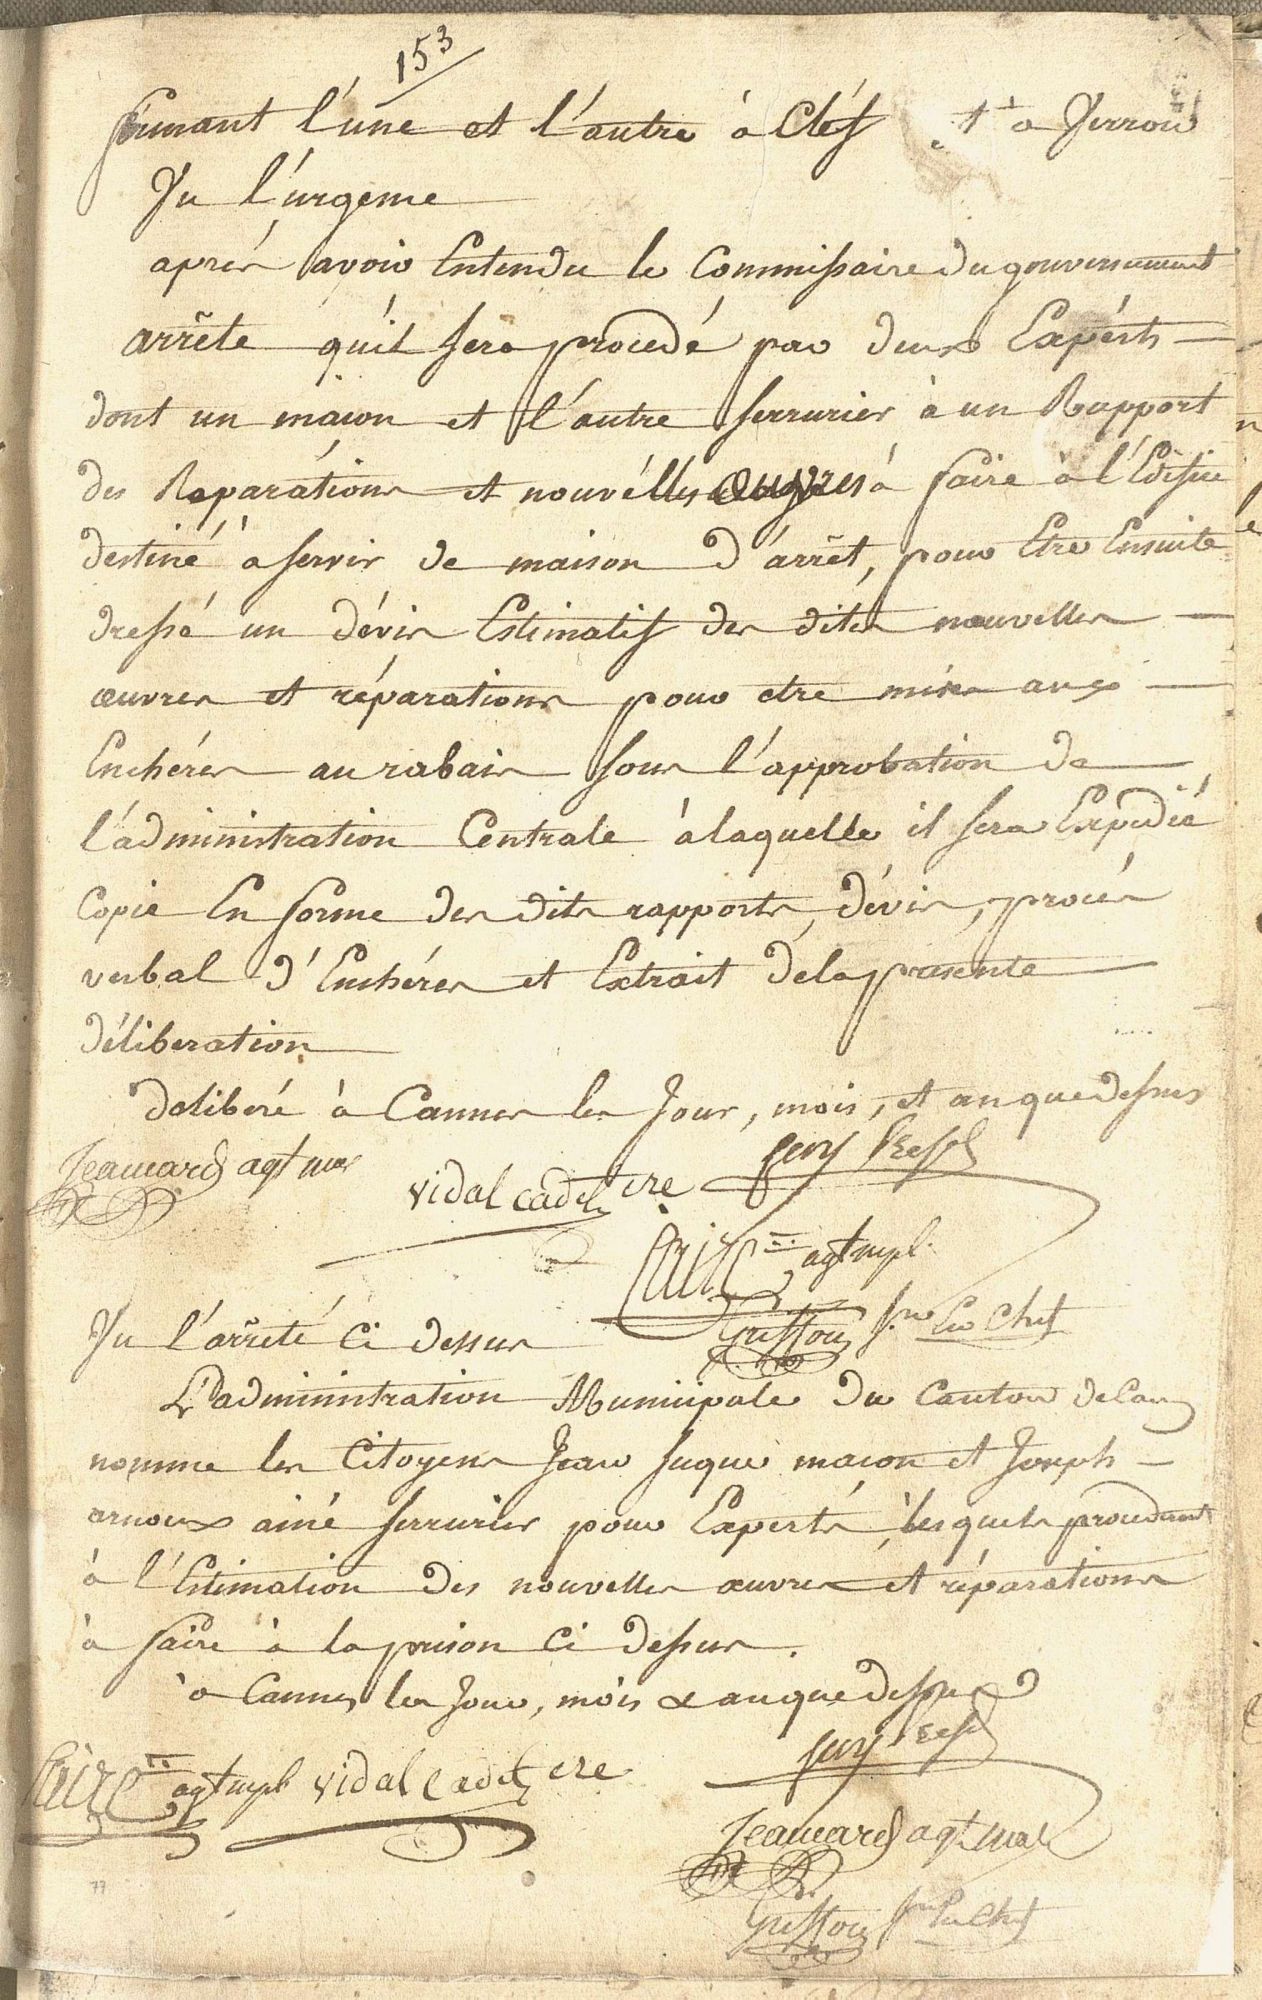 153
fermant l'une et l'autre à Clef et à Verrou
Vu l'urgence
aprés avoir Entendu le Commissaire du gouvernement
arrête qu'il sera procedé par deux Expérts
dont un maçon et l'autre serrurier à un Rapport
des Réparations et nouvélles œuvres à faire à l'Edifice
destiné à servir de maison d'arrêt, pour Etre Ensuite
dressé un dévis Estimatif des dites nouvelles
œuvres et réparations pour etre mises aux
Enchéres au rabais sous l'approbation de
l'administration Centrale à laquelle il sera Expédié
Copie En forme des dits rapports, dévis, procés
verbal d'Enchéres et Extrait de la presente
déliberation
deliberé à Cannes les Jour, mois, et an que dessus
Jeancard agt mal
Vidal Cadet
agt mpl
Vu l'arrêté Ci dessus
L'administration Municipale du Canton de Can
nomme les Citoyens Jean Suque maçon et Joseph
arnoux ainé serrurier pour Experts, lesquels procedront
à l'Estimation des nouvelles œuvres et réparations
à faire à la prison Ci dessus.
à Cannes les Jour, mois & an que dessus
agt mpl Vidal Cadet
Jeancard agt mal
77